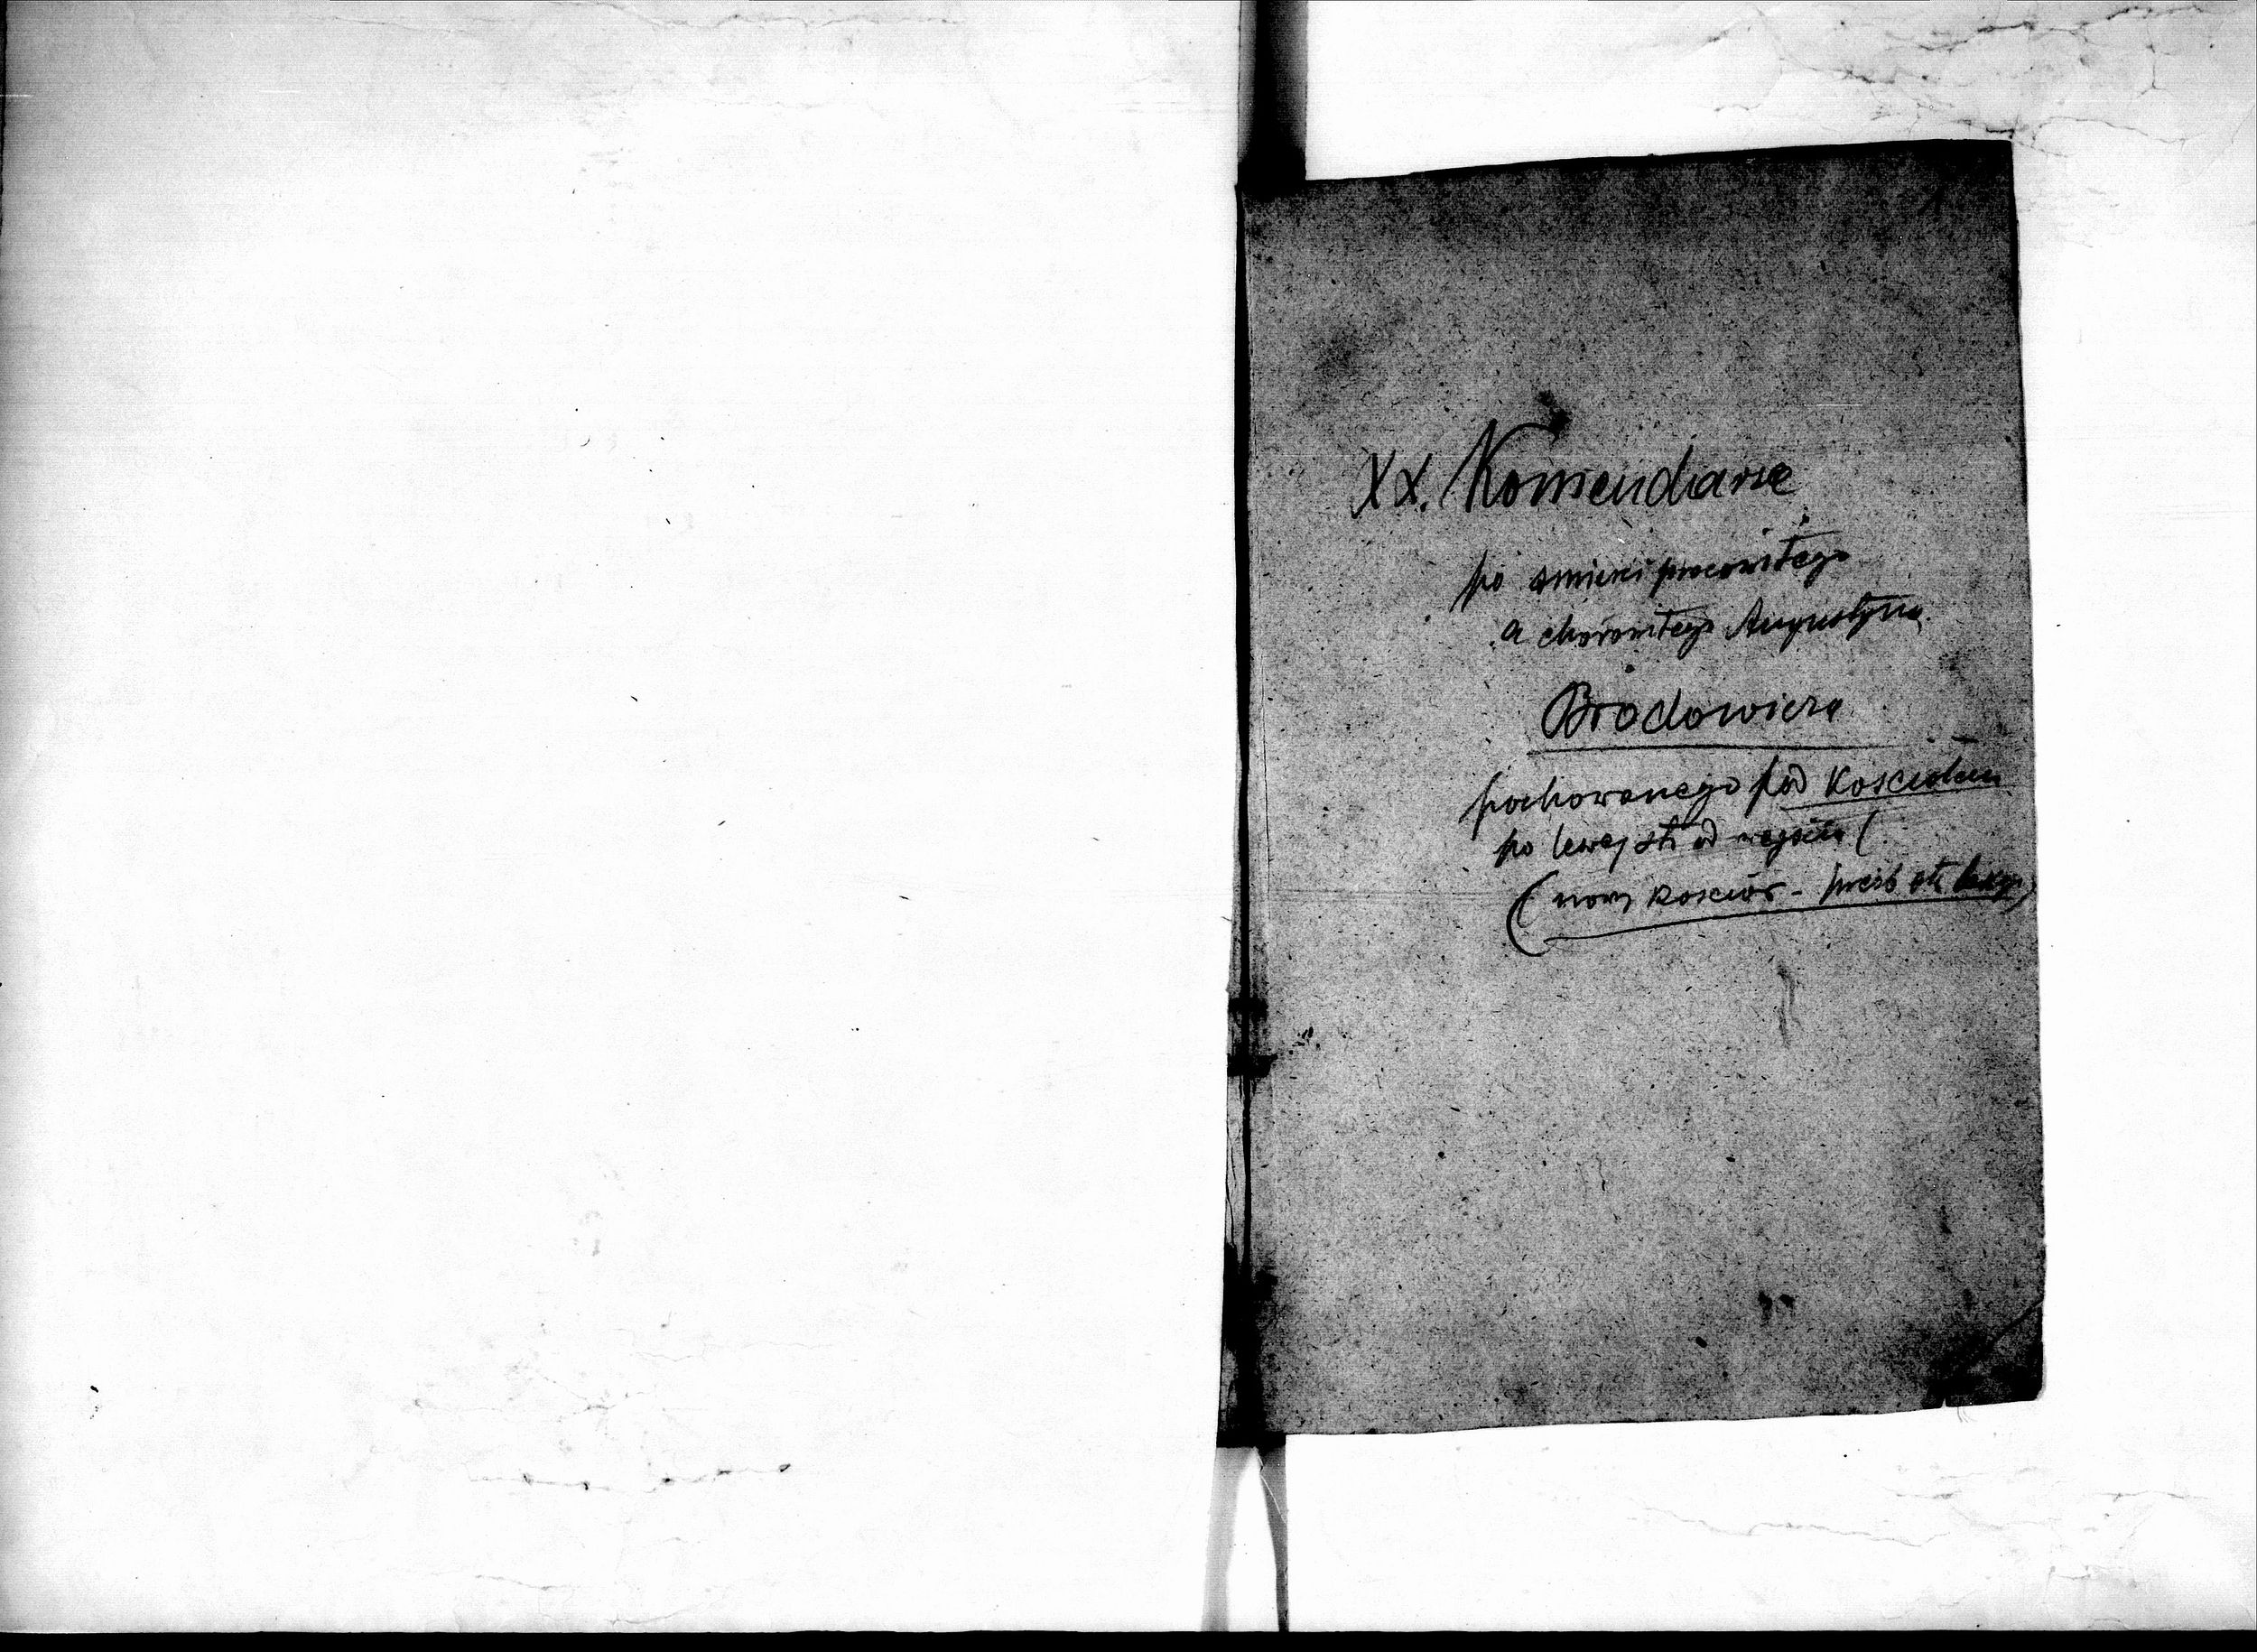 XX. Komendarze
po śmierci pracowitego
a chorowitego Augustyna
Brodowicza
pochowanego pod Kościołem
po lewej str od wejścia (
( nowy Kościół - prezb str